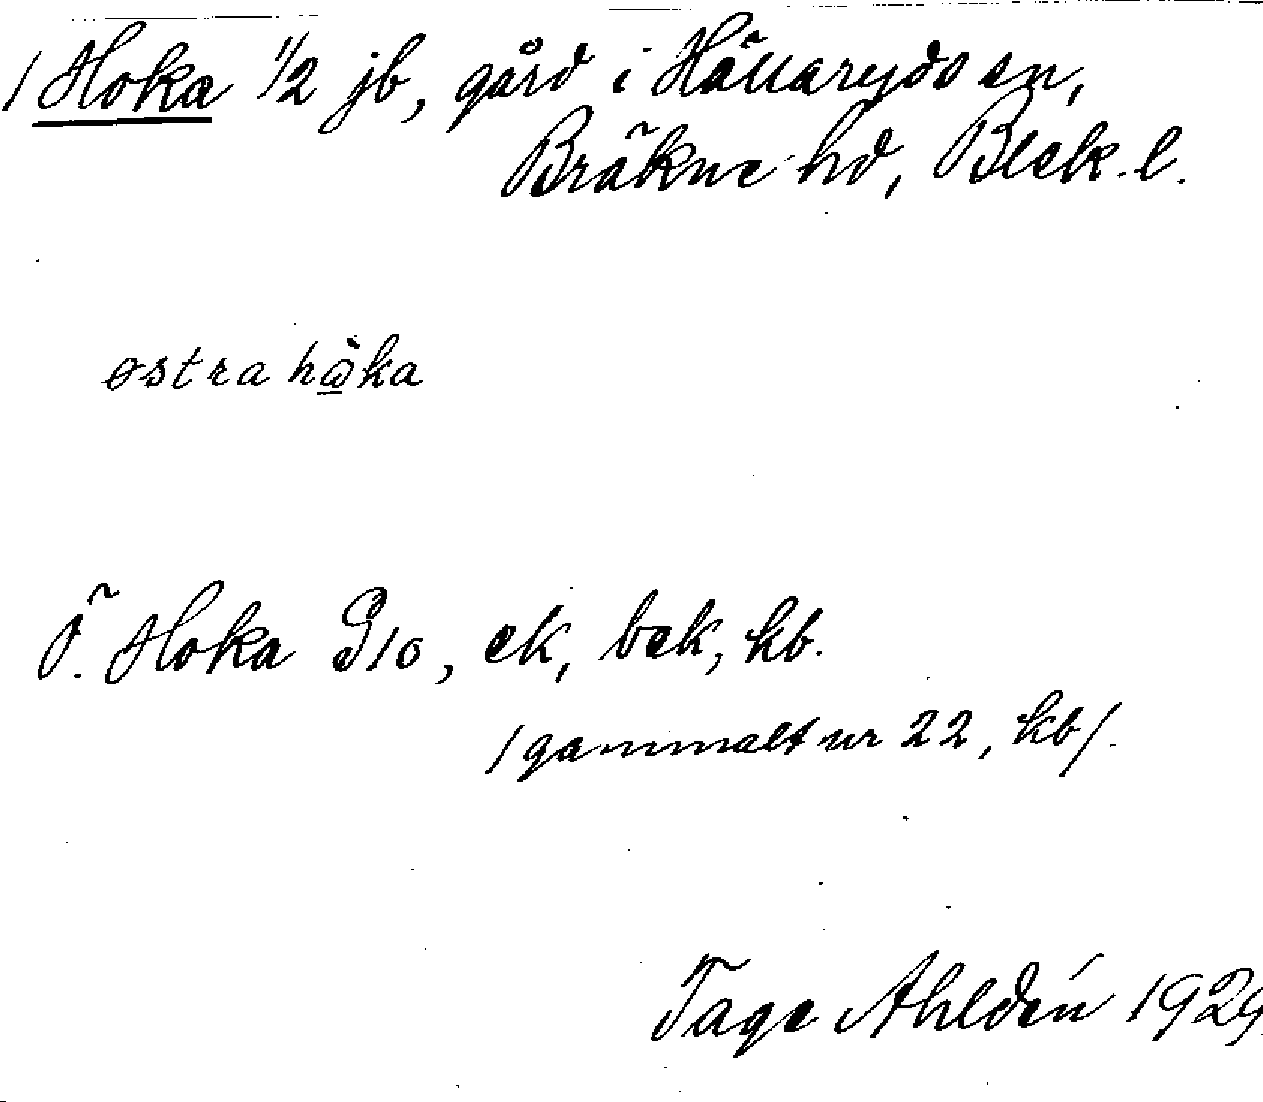 / Hoka 1/2 jb, gård i Hällaryds sn,
Bräkne hd, Blek. l.
østra hω̊̀ka
Ö. Hoka G10, ek, bek, kb.
/gammalt nr 22, kb/.
Tage Ahldén 1929